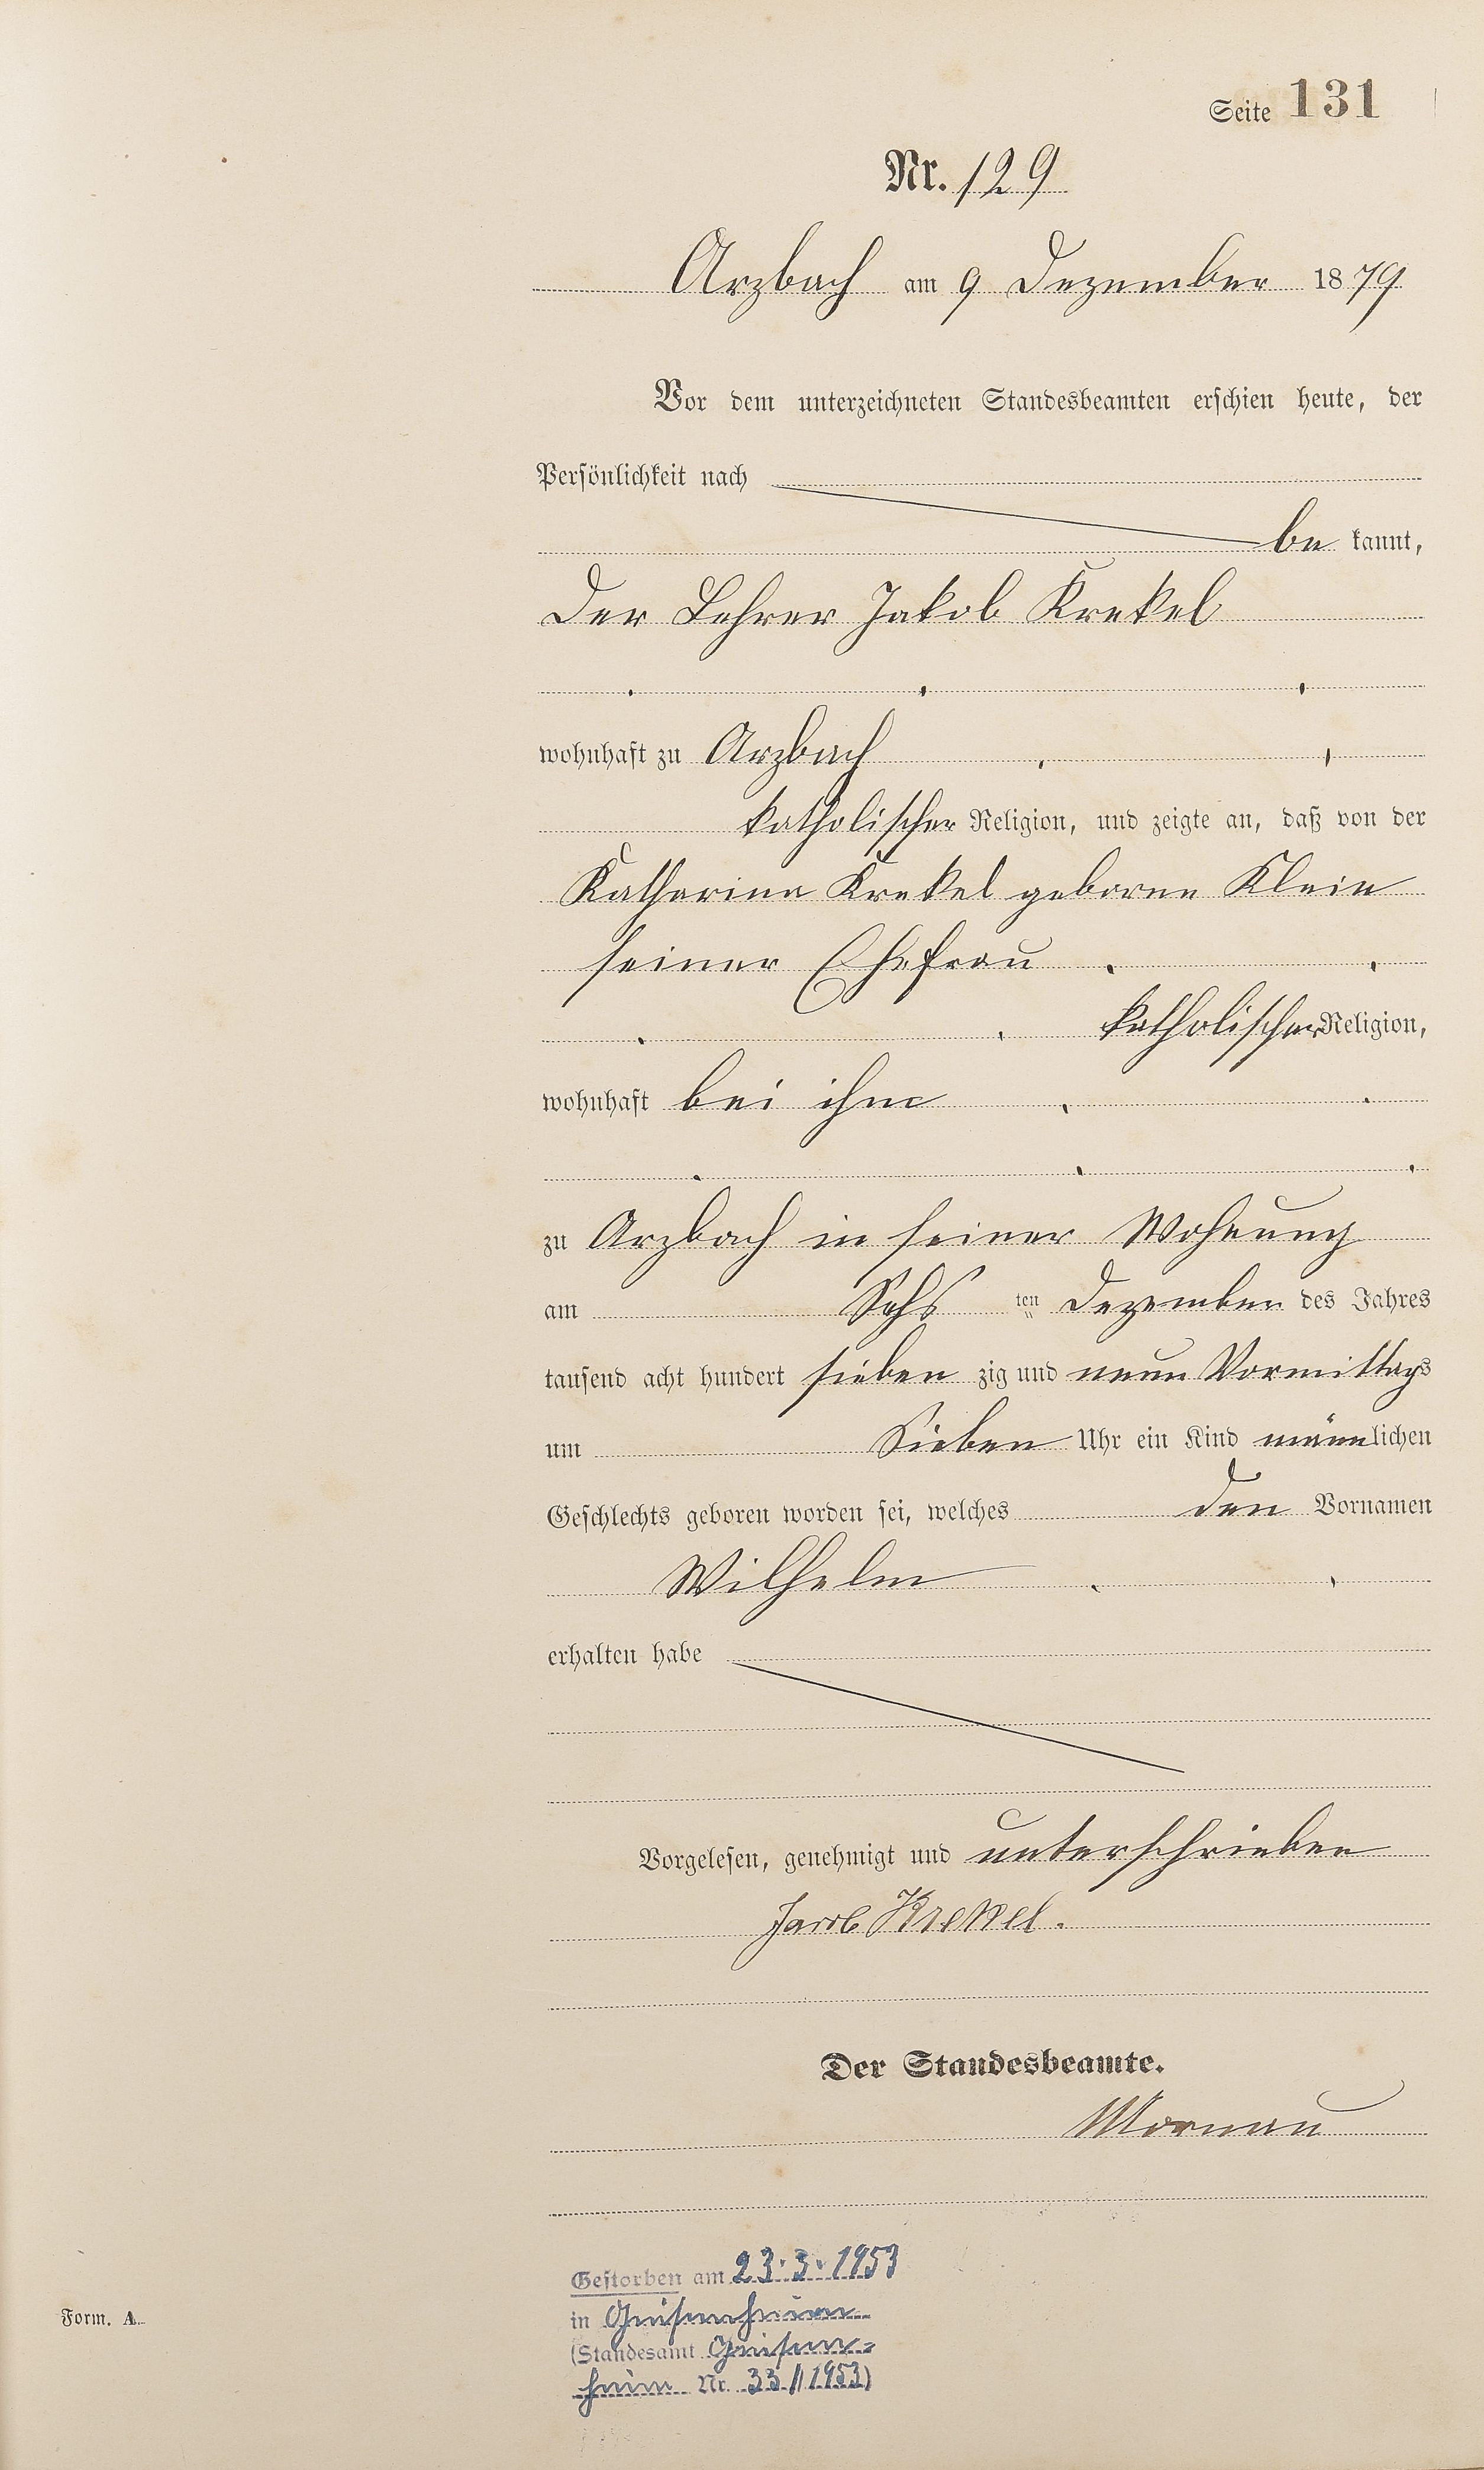 Seite 131
Nr. 129
Arzbach am 9 Dezember 1879
Vor dem unterzeichneten Standesbeamten erschien heute, der
Persönlichkeit nach
be kannt,
der Lehrer Jakob Krekel
wohnhaft zu Arzbach
katholischer Religion, und zeigte an, daß von der
Katharina Krekel geborene Klein
seiner Ehefrau
katholischer Religion,
wohnhaft bei ihm
zu Arzbach in seiner Wohnung
am Sechs ten Dezember des Jahres
tausend acht hundert sieben zig und neun Vormittags
um Sieben Uhr ein Kind männlichen
Geschlechts geboren worden sei, welches den Vornamen
Wilhelm
erhalten habe
Vorgelesen, genehmigt und unterschrieben
Jacob Krekel.
Der Standesbeamte.
Gestorben am 23.3.1953
in Geisenheim
(Standesamt Geisen-
heim Nr. 33/1953)
Form. A.